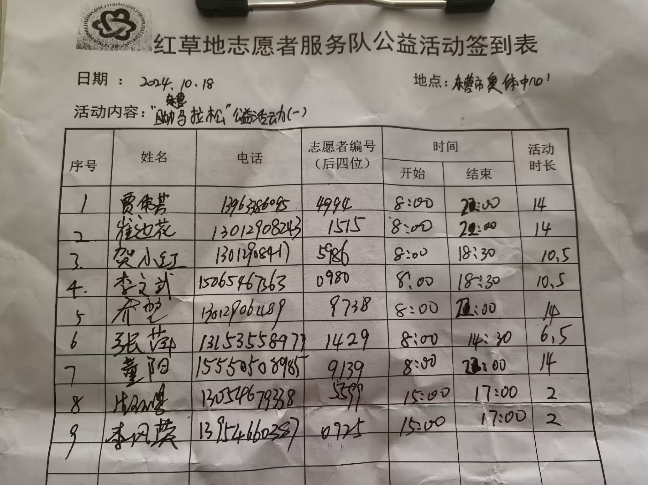 红草地志愿者服务队公益活动签到表
日期： 2024.10.18 地点：东营市奥体中心
活动内容："东营马拉松"公益活动(一)
序号 姓名 电话 志愿者编号（后四位） 时间 开始 结束 活动时长
1 4994 8:00 14
2 崔边花 13012908243 1515 8:00 14
3. 贺小红 5986 8:00 18:30 10.5
4. 李文武 15065467363 0980 8:00 18:30 10.5
5 乔 13012906489 9738 8:00 14
6 张萍 13153558977 1429 8:00 14:30 6.5
7 董阳 15550508985 9139 8:00 14
8 13054679338 5599 15:00 17:00 2
9 李凤英 13954660387 0725 15:00 17:00 2